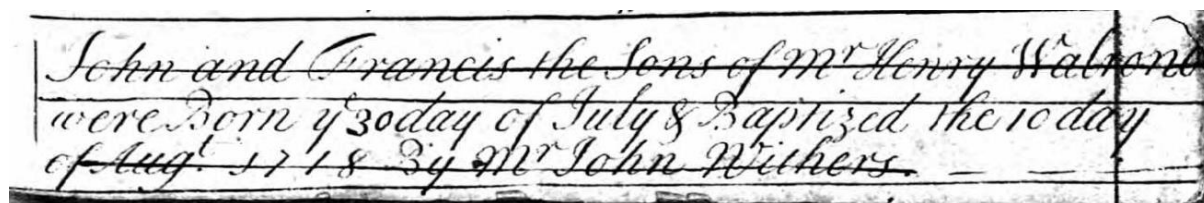 John and Francis the Sons of Mr Henry Walrond
were Born ye 30 day of July & Baptized the 10 day
of Augt. 1718 By Mr John Withers.